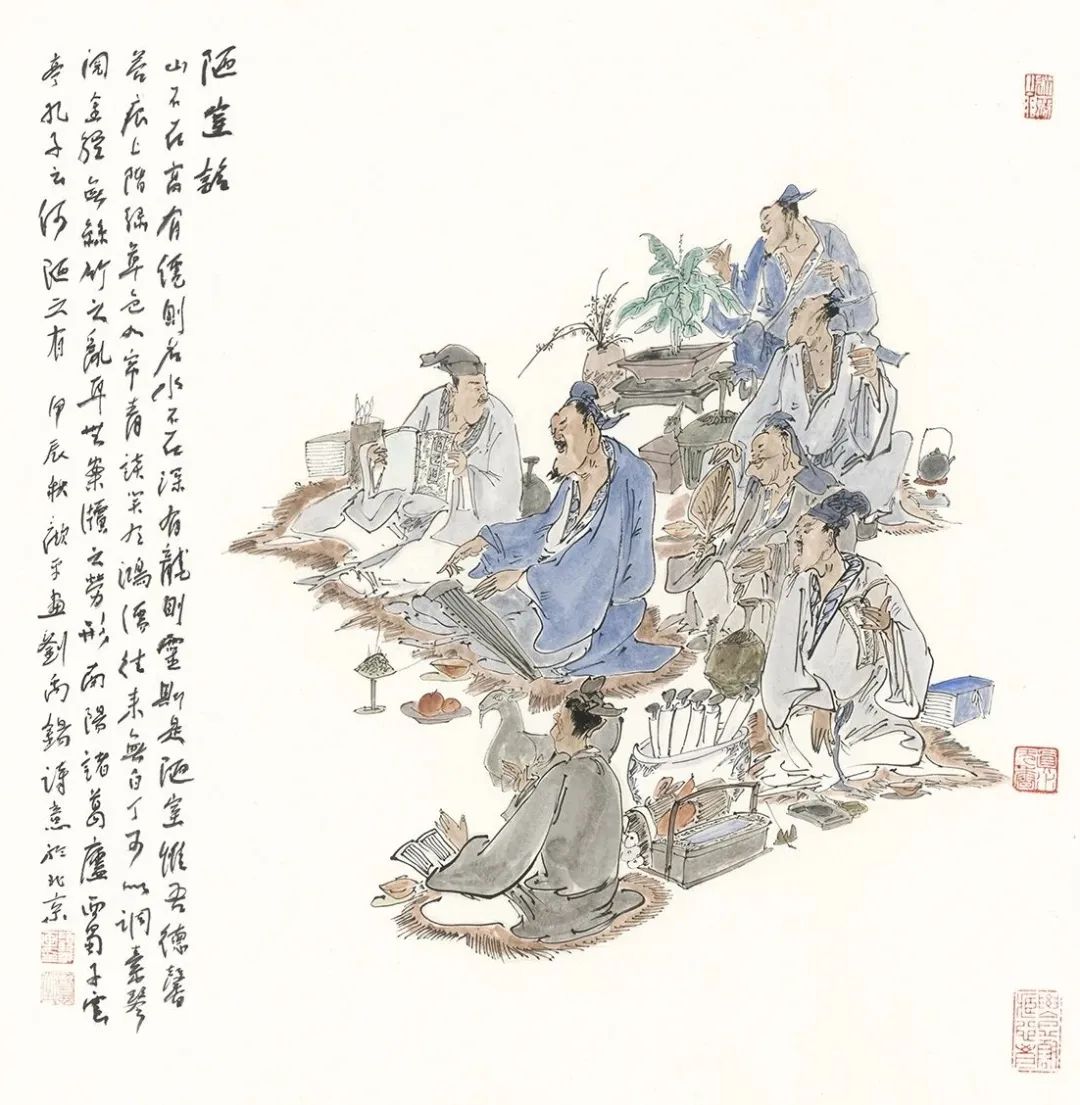 陋室銘
山不在高有僊則名水不在深有龍則靈斯是陋室惟吾德馨
苔痕上階綠草色入帘青談笑有鴻儒往來無白丁可以調素琴
閱金經無絲竹之亂耳無案牘之勞形南陽諸葛廬西蜀子雲
亭孔子云何陋之有 甲辰秋平畫劉禹錫詩意於北京